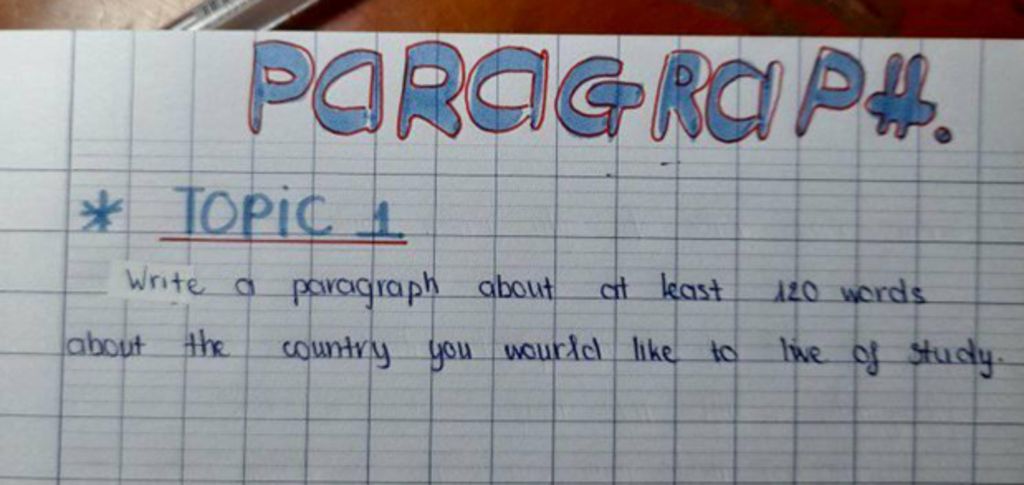 PARAGRAPH.
* TOPIC 1
Write a paragraph about at least 120 words
about the country you wourld like to live of study.